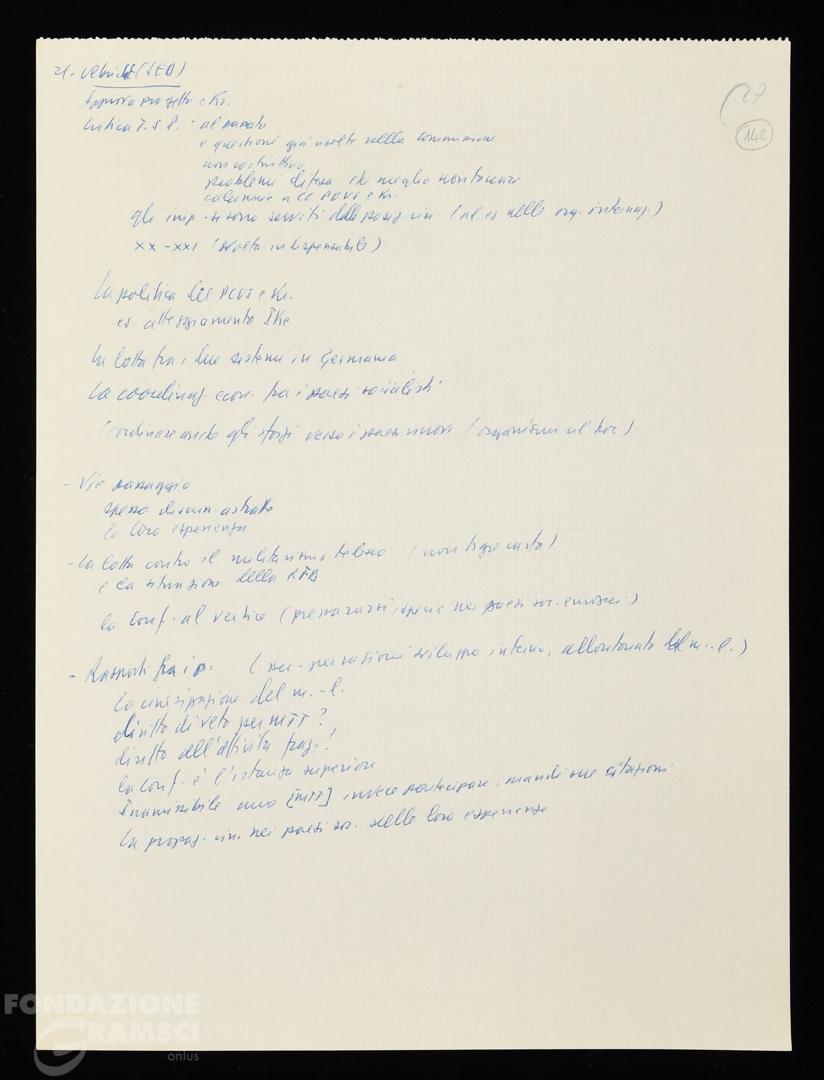 21. Ulbricht (SED)
27
142
Approva progetto e Kr.
Critica T.S.P. - al passato
e questioni già risolte nella commissione
non costruttiva
problemi difesa che meglio
calunnie a CC PCUS e Kr.
gli imp. si sono serviti delle posiz. cin. (ad es. nelle org. internaz.)
XX-XXI (svolta indispensabile)
La politica del PCUS e Kr.
es. atteggiamento Ike
La lotta fra i due sistemi in Germania
La coordinaz. econ. fra i paesi socialisti
Coordinare anche gli sforzi verso i paesi nuovi (organismi ad hoc)
- Vie passaggio
spesso discuss. astratte
la loro esperienza
- La lotta contro il militarismo tedesco (non tigre carta)
e la situazione della RFA
la Conf. al vertice (prepararsi specie nei paesi soc. europei)
- Rapporti fra i p. (per ragioni sviluppo interno, allontanato dal m.-l.)
la cinesizzazione del m.-l.
diritto di veto per MTT?
diritto all'attività fraz.!
la Conf. è l'istanza superiore
Inammissibile uno [MTT] invece partecipare, mandi sue citazioni
La propag. cin. nei paesi soc. sulle loro esperienze
FONDAZIONE
GRAMSCI
onlus